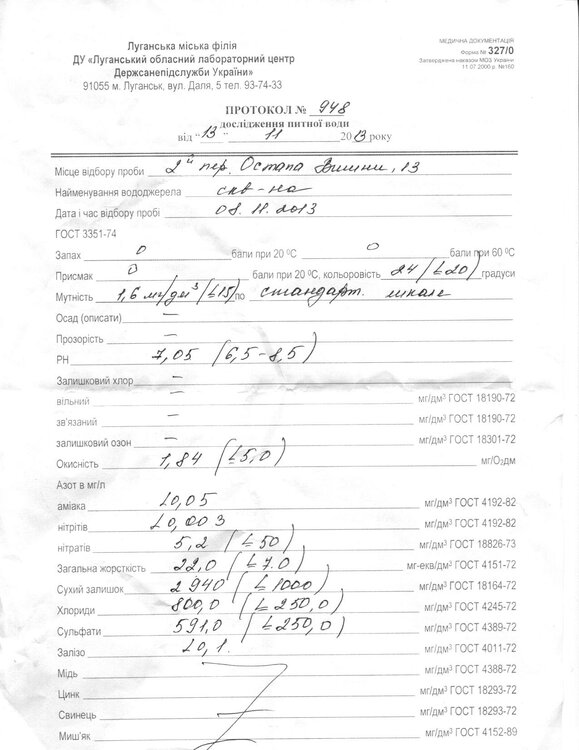 Луганська міська філія
ДУ «Луганський обласний лабораторний центр
Держсанепідслужби України»
91055 м. Луганськ, вул. Даля, 5 тел. 93-74-33
МЕДИЧНА ДОКУМЕНТАЦІЯ
Форма № 327/0
Затверджена наказом МОЗ України
11.07.2000 р. №160
ПРОТОКОЛ № 948
дослідження питної води
від "13" 11 2013 року
Місце відбору проби 2й пер. Остапа Вишни, 13
Найменування вододжерела скв-на
Дата і час відбору пробі 08.11.2013
ГОСТ 3351-74
Запах 0 бали при 20 ⁰С 0 бали при 60 ⁰С
Присмак 0 бали при 20 ⁰С, кольоровість 24 (≤20) градуси
Мутність 1,6 мг/дм³ (≤1,5) по стандарт. шкале
Осад (описати) –
Прозорість –
РН 7,05 (6,5-8,5)
Залишковий хлор –
вільний – мг/дм³ ГОСТ 18190-72
зв'язаний – мг/дм³ ГОСТ 18190-72
залишковий озон – мг/дм³ ГОСТ 18301-72
Окисність 1,84 (≤5,0) мг/О₂дм
Азот в мг/л
аміака <0,05 мг/дм³ ГОСТ 4192-82
нітрітів <0,003 мг/дм³ ГОСТ 4192-82
нітратів 5,2 (≤50) мг/дм³ ГОСТ 18826-73
Загальна жорсткість 22,0 (≤7.0) мг-екв/дм³ ГОСТ 4151-72
Сухий залишок 2940 (≤1000) мг/дм³ ГОСТ 18164-72
Хлориди 800,0 (≤250,0) мг/дм³ ГОСТ 4245-72
Сульфати 591,0 (≤250,0) мг/дм³ ГОСТ 4389-72
Залізо <0,1. мг/дм³ ГОСТ 4011-72
Мідь мг/дм³ ГОСТ 4388-72
Цинк мг/дм³ ГОСТ 18293-72
Свинець мг/дм³ ГОСТ 18293-72
Миш'як мг/дм³ ГОСТ 4152-89